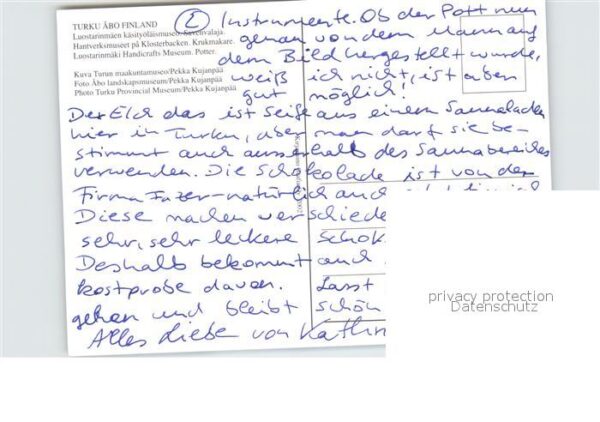 TURKU ÅBO FINLAND
Luostarinmäen käsityöläismuseo. Savenvalaja.
Hantverksmuseet på Klosterbacken. Krukmakare.
Luostarinmäki Handicrafts Museum. Potter.
Kuva Turun maakuntamuseo/Pekka Kujanpää
Foto Åbo landskapsmuseum/Pekka Kujanpää
Photo Turku Provincial Museum/Pekka Kujanpää
② Instrumente. Ob der Pott nun
genau von dem Mann auf
dem Bild hergestellt wurde,
weiß ich nicht, ist aber
gut möglich!
Der Elch das ist Seife aus einem Saunaladen
hier in Turku, aber man darf sie be-
stimmt auch ausserhalb des Saunabereiches
verwenden. Die Schokolade ist von der
Firma Fazer - natürlich auch
Diese machen verschiede
sehr, sehr leckere Schok
Deshalb bekommt auch
Kostprobe davon. Lasst
gehen und bleibt schön
Alles Liebe von Kathrin
privacy protection
Datenschutz